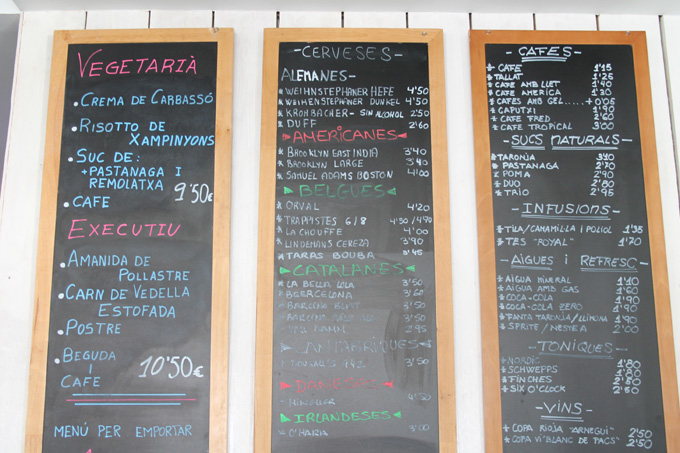 VEGETARIÀ
CREMA DE CARBASSÓ
RISOTTO DE
XAMPINYONS
SUC DE:
+ PASTANAGA I
REMOLATXA
CAFE
9'50€
EXECUTIU
AMANIDA DE
POLLASTRE
CARN DE VEDELLA
ESTOFADA
POSTRE
BEGUDA
I
CAFE
10'50€
MENÚ PER EMPORTAR
-CERVESES-
ALEMANES-
WEIHNSTEPHANER HEFE 4'50
WEIHENSTEPHANER DUNKEL 4'50
KROMBACHER- SIN ALCOHOL 2'50
DUFF 2'60
AMERICANES
BROOKLYN EAST INDIA 3'40
BROOKLYN LARGE 3'40
SAMUEL ADAMS BOSTON 4'00
BELGUES
ORVAL 4'20
TRAPPISTES 6/8 4'50/4'90
LA CHOUFFE 4'00
LINDEMANS CEREZA 3'90
TARAS BOUBA 3'45
CATALANES
LA BELLA LOLA 3'50
BEERCELONA 3'60
BARCINO 3'50
BARCINO 3'50
2'95
3'50
DANESES
4'50
IRLANDESES
O'HARA 3'50
-CAFES-
CAFE 1'15
TALLAT 1'25
CAFE AMB LLET 1'40
CAFE AMERICA 1'30
CAFES AMB GEL.....+0'05
CAPUTXI 1'90
CAFE FRED 2'60
CAFE TROPICAL 3'00
SUCS NATURALS
TARONJA 3'40
PASTANAGA 2'70
POMA 2'90
DUO 2'80
TRIO 2'95
-INFUSIONS-
TILA/CAMAMILLA I POLIOL 1'35
TES "ROYAL" 1'70
-AIGUES I REFRESC-
AIGUA MINERAL 1'10
AIGUA AMB GAS 1'60
COCA-COLA 1'90
COCA-COLA ZERO 1'90
FANTA TARONJA/LLIMONA 1'90
SPRITE/NESTEA 2'00
-TONIQUES-
NORDIC 1'80
SCHWEPPS 1'80
FINCHES 2'50
SIX O'CLOCK 2'50
-VINS-
COPA RIOJA "ARNEGUI" 2'50
COPA VI "BLANC DE PACS" 2'50